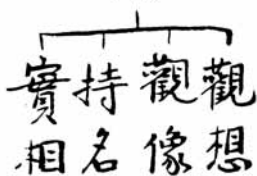 觀想
觀像
持名
實相